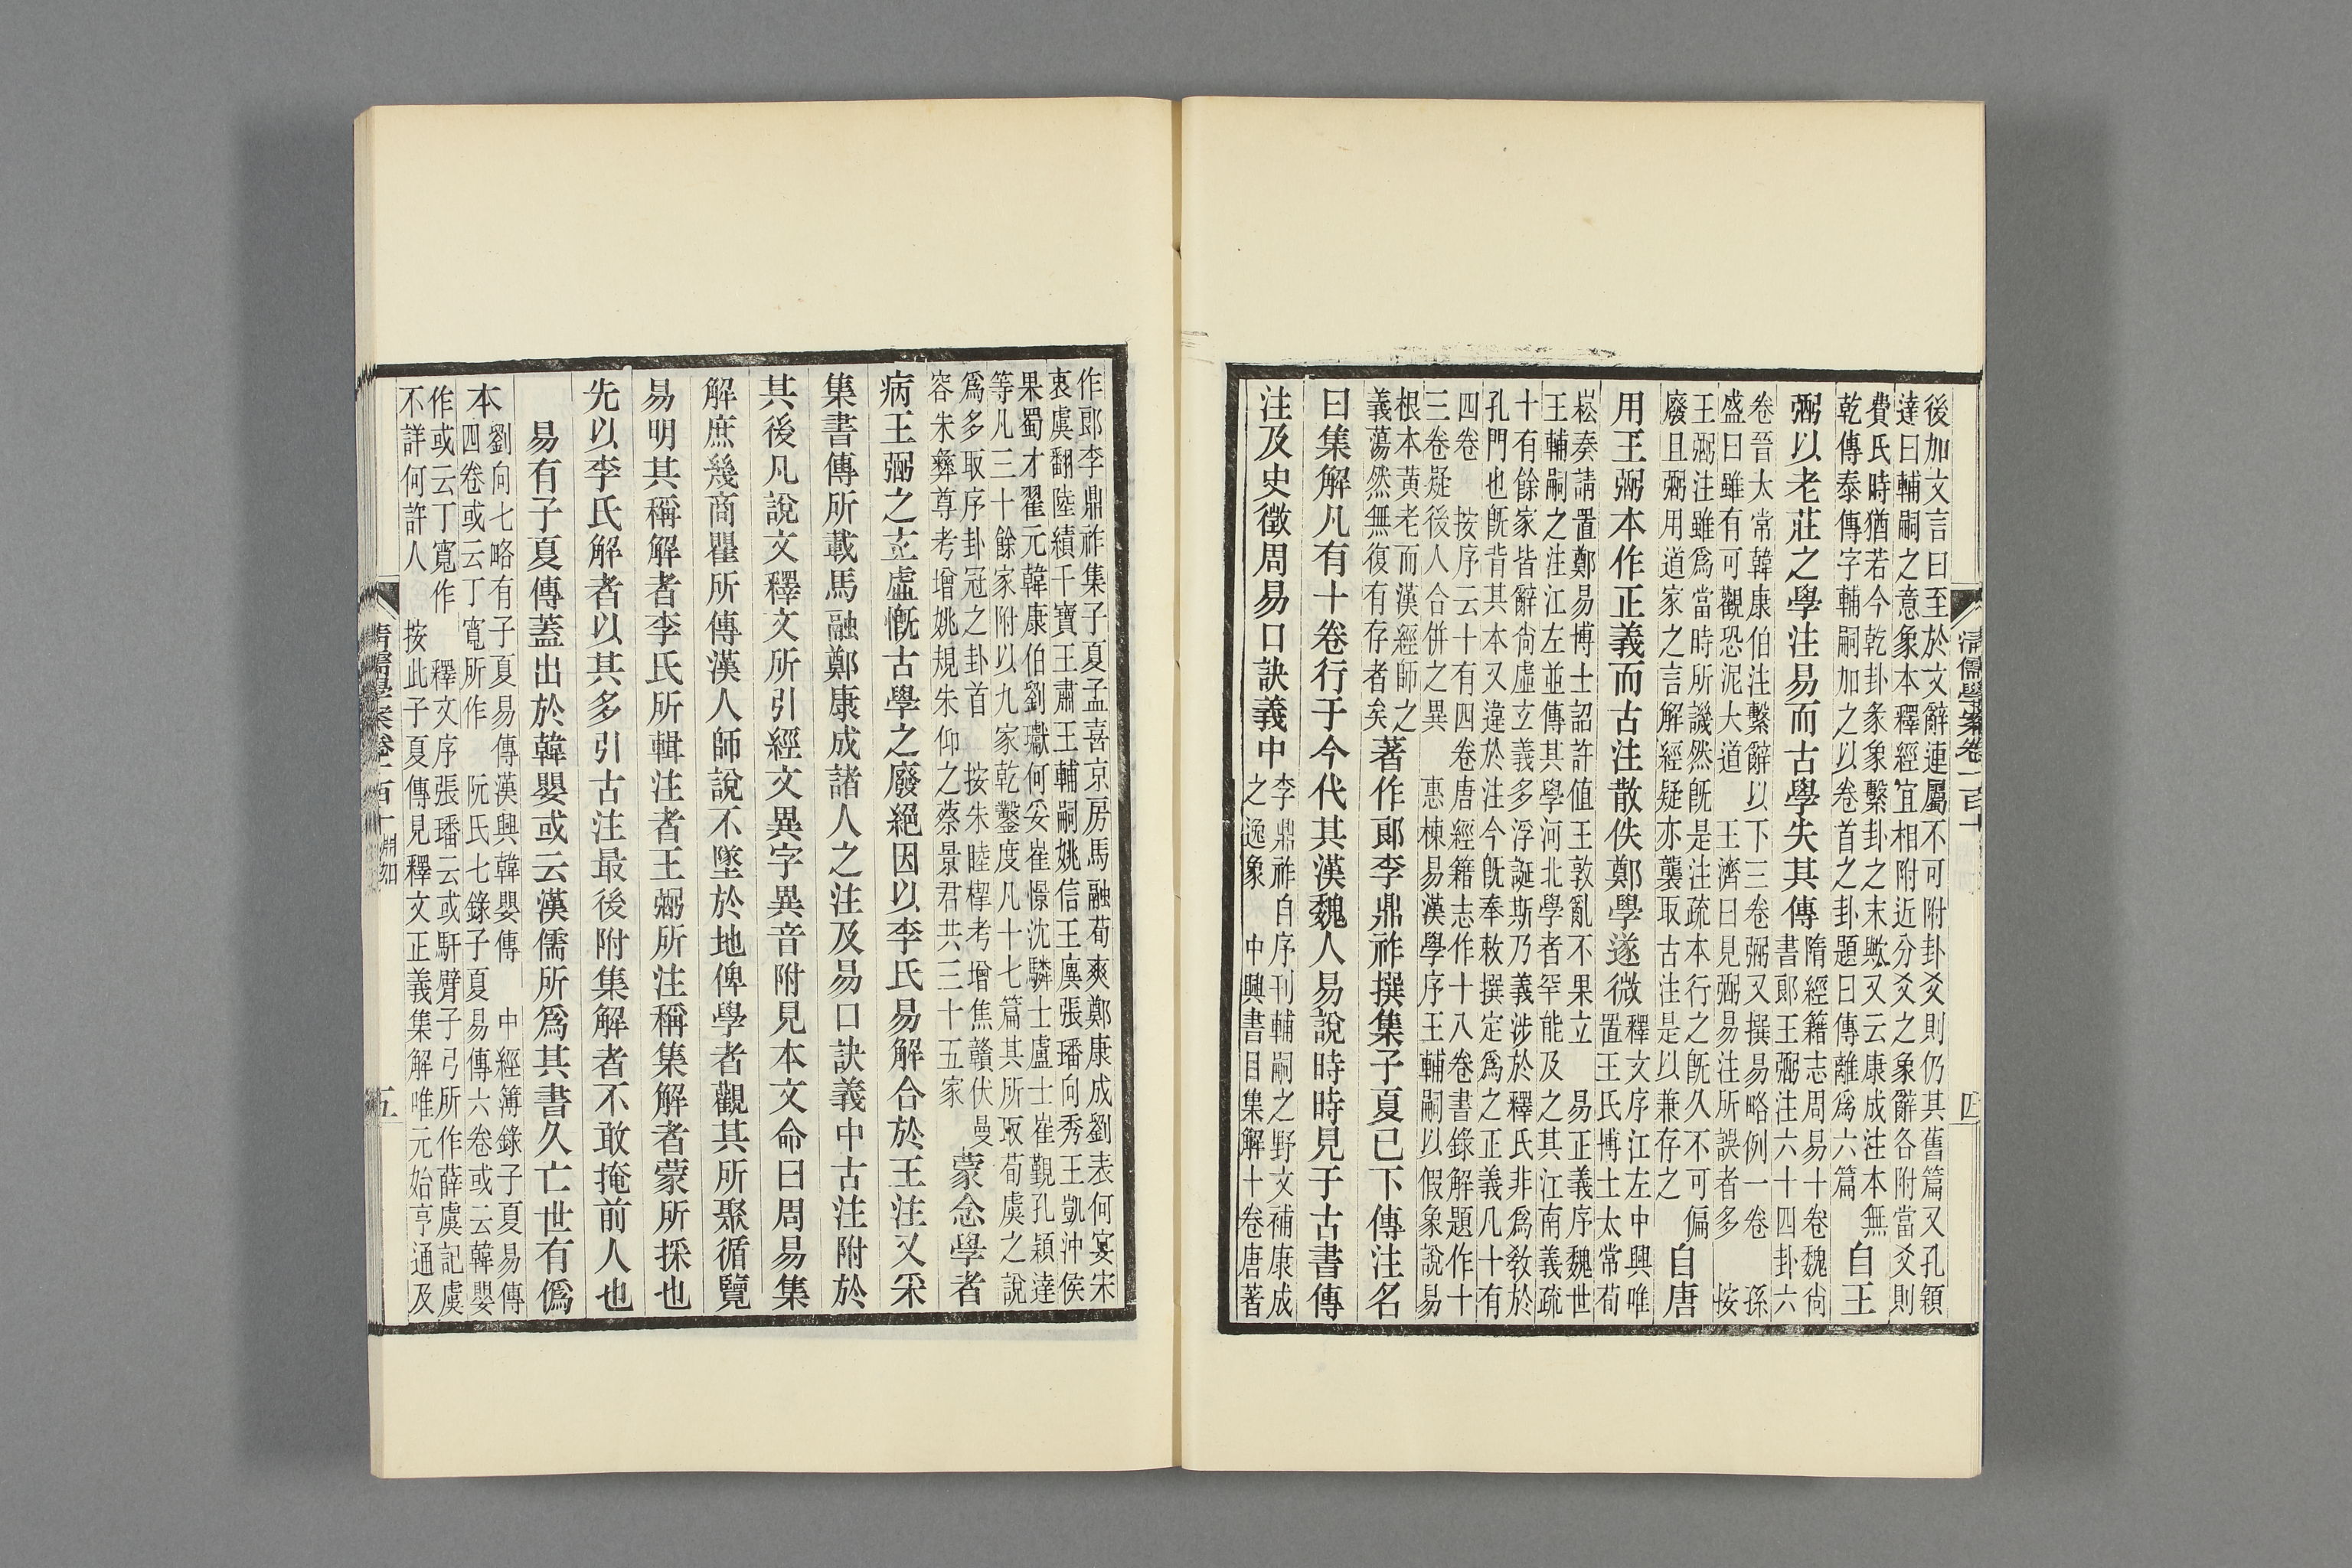 清儒學案卷一百十
四
後加文言曰至於文辭連屬不可附卦爻則仍其舊篇又孔穎
達曰輔嗣之意象本釋經宜相附近分爻之象辭各附當爻則
費氏時猶若今乾卦彖象繫卦之末歟又云康成注本無
乾傳泰傳字輔嗣加之以卷首之卦題曰傳離爲六篇
自王
弼以老莊之學注易而古學失其傳
隋經籍志周易十卷魏尙
書郎王弼注六十四卦六
卷晉太常韓康伯注繫辭以下三卷弼又撰易略例一卷 孫
盛曰雖有可觀恐泥大道 王濟曰見弼易注所誤者多 按
王弼注雖爲當時所譏然旣是注疏本行之旣久不可偏
廢且弼用道家之言解經疑亦襲取古注是以兼存之
自唐
用王弼本作正義而古注散佚鄭學遂微
釋文序江左中興唯
置王氏博士太常荀
崧奏請置鄭易博士詔許值王敦亂不果立 易正義序魏世
王輔嗣之注江左並傳其學河北學者罕能及之其江南義疏
十有餘家皆辭尙虛立義多浮誕斯乃義涉於釋氏非爲敎於
孔門也旣背其本又違於注今旣奉敕撰定爲之正義凡十有
四卷 按序云十有四卷唐經籍志作十八卷書錄解題作十
三卷疑後人合併之異 惠棟易漢學序王輔嗣以假象說易
根本黃老而漢經師之
義蕩然無復有存者矣
著作郎李鼎祚撰集子夏已下傳注名
曰集解凡有十卷行于今代其漢魏人易說時時見于古書傳
注及史徵周易口訣義中
李鼎祚自序刊輔嗣之野文補康成
之逸象 中興書目集解十卷唐著
作郎李鼎祚集子夏孟喜京房馬融荀爽鄭康成劉表何宴宋
衷虞翻陸績干寶王肅王輔嗣姚信王廙張璠向秀王凱沖侯
果蜀才翟元韓康伯劉瓛何妥崔憬沈驎士盧士崔覲孔穎達
等凡三十餘家附以九家乾鑿度凡十七篇其所取荀虞之說
爲多取序卦冠之卦首 按朱睦㮮考增焦贛伏曼
容朱彝尊考增姚規朱仰之蔡景君共三十五家
蒙念學者
病王弼之玄虛慨古學之廢絕因以李氏易解合於王注又采
集書傳所載馬融鄭康成諸人之注及易口訣義中古注附於
其後凡說文釋文所引經文異字異音附見本文命曰周易集
解庶幾商瞿所傳漢人師說不墜於地俾學者觀其所聚循覽
易明其稱解者李氏所輯注者王弼所注稱集解者蒙所採也
先以李氏解者以其多引古注最後附集解者不敢掩前人也
易有子夏傳蓋出於韓嬰或云漢儒所爲其書久亡世有僞
本
劉向七略有子夏易傳漢興韓嬰傳 中經簿錄子夏易傳
四卷或云丁寬所作 阮氏七錄子夏易傳六卷或云韓嬰
作或云丁寬作 釋文序張璠云或馯臂子弓所作薛虞記虞
不詳何許人 按此子夏傳見釋文正義集解唯元始亨通及
清儒學案卷一百十
五